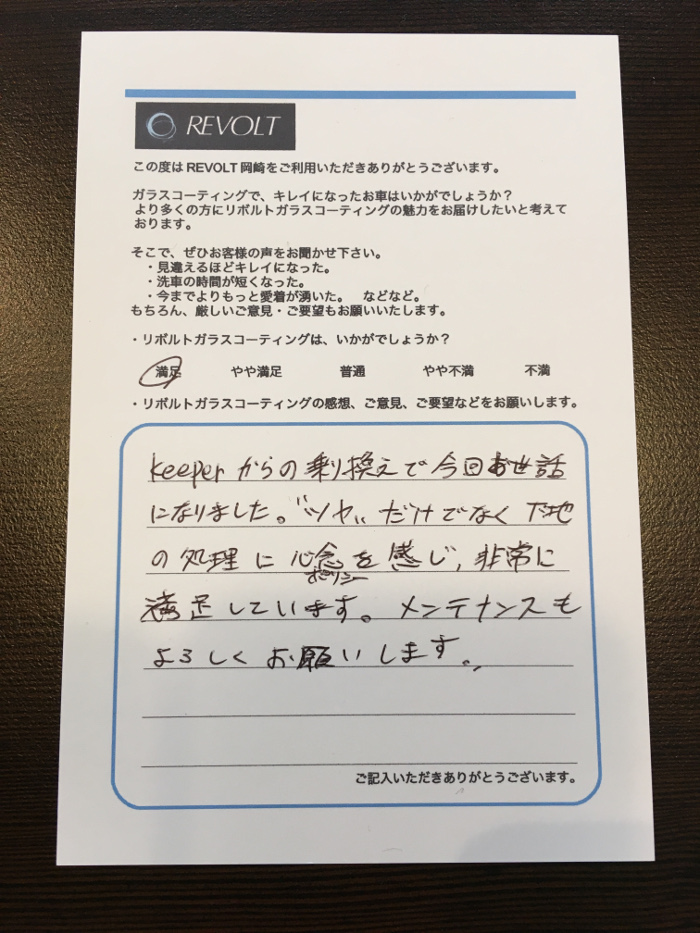 REVOLT
この度は REVOLT 岡崎をご利用いただきありがとうございます。
ガラスコーティングで、キレイになったお車はいかがでしょうか？
より多くの方にリボルトガラスコーティングの魅力をお届けしたいと考えて
おります。
そこで、ぜひお客様の声をお聞かせ下さい。
・見違えるほどキレイになった。
・洗車の時間が短くなった。
・今までよりもっと愛着が湧いた。 などなど。
もちろん、厳しいご意見・ご要望もお願いいたします。
・リボルトガラスコーティングは、いかがでしょうか？
満足 やや満足 普通 やや不満 不満
・リボルトガラスコーティングの感想、ご意見、ご要望などをお願いします。
keeperからの乗り換えで今回お世話
になりました。"ツヤ"だけでなく下地
の処理に心念を感じ、非常に
ポリシー
満足しています。メンテナンスも
よろしくお願いします。
ご記入いただきありがとうございます。